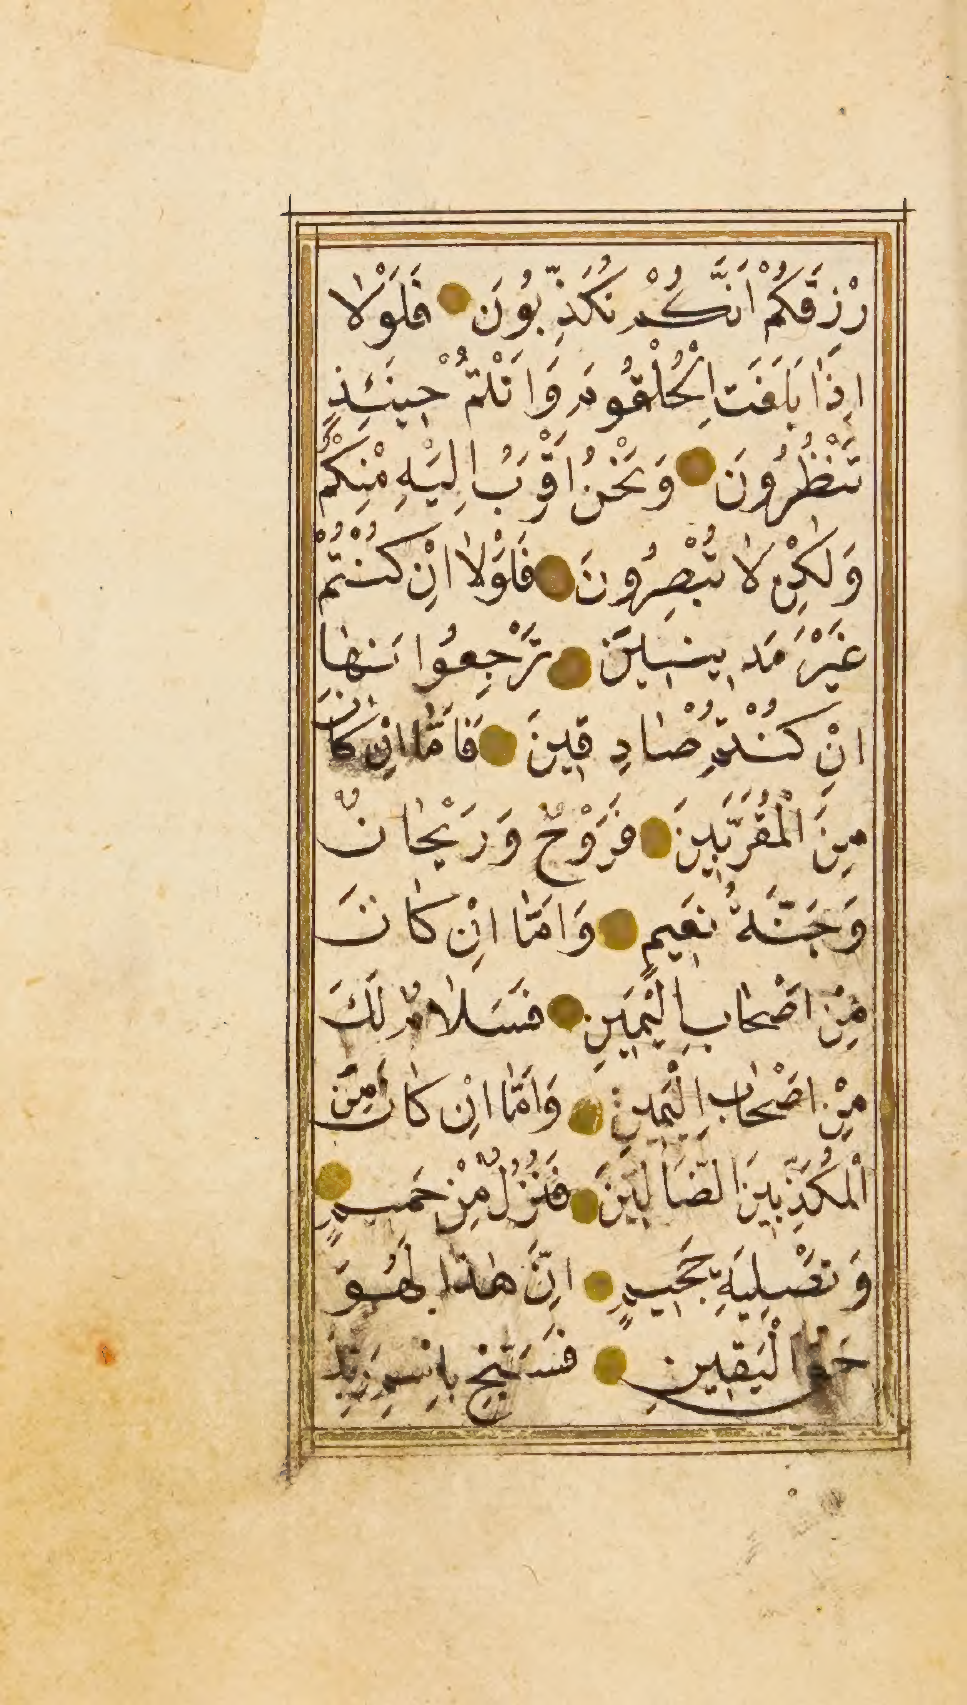 رْزِقَكُمْ اَنَّكُمْ تُكَذِّبُونَ فَلَوْلَا
اِذَا بَلَغَتِ الْحُلْقُومَ وَاَنْتُمْ حٖينَئِذٍ
تَنْظُرُونَ وَنَحْنُ اَقْرَبُ اِلَيْهِ مِنْكُمْ
وَلٰكِنْ لَا تُبْصِرُونَ فَلَوْلَا اِنْ كُنْتُمْ
غَيْرَ مَدٖينٖينَ تَرْجِعُونَهَا
اِنْ كُنْتُمْ صَادِقٖينَ فَاَمَّا اِنْ كَانَ
مِنَ الْمُقَرَّبٖينَ فَرَوْحٌ وَرَيْحَانٌ
وَجَنَّةُ نَعٖيمٍ وَاَمَّا اِنْ كَانَ
مِنْ اَصْحَابِ الْيَمٖينِ فَسَلَامٌ لَكَ
مِنْ اَصْحَابِ الْيَمٖينِ وَاَمَّا اِنْ كَانَ مِنَ
الْمُكَذِّبٖينَ الضَّالّٖينَ فَنُزُلٌ مِنْ حَمٖيمٍ
وَتَصْلِيَةُ جَحٖيمٍ اِنَّ هٰذَا لَهُوَ
حَقُّ الْيَقٖينِ فَسَبِّحْ بِاسْمِ رَبِّكَ